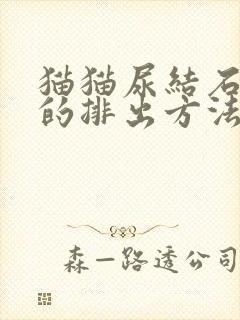 猫猫尿結石
的排出方法
森一路透公司